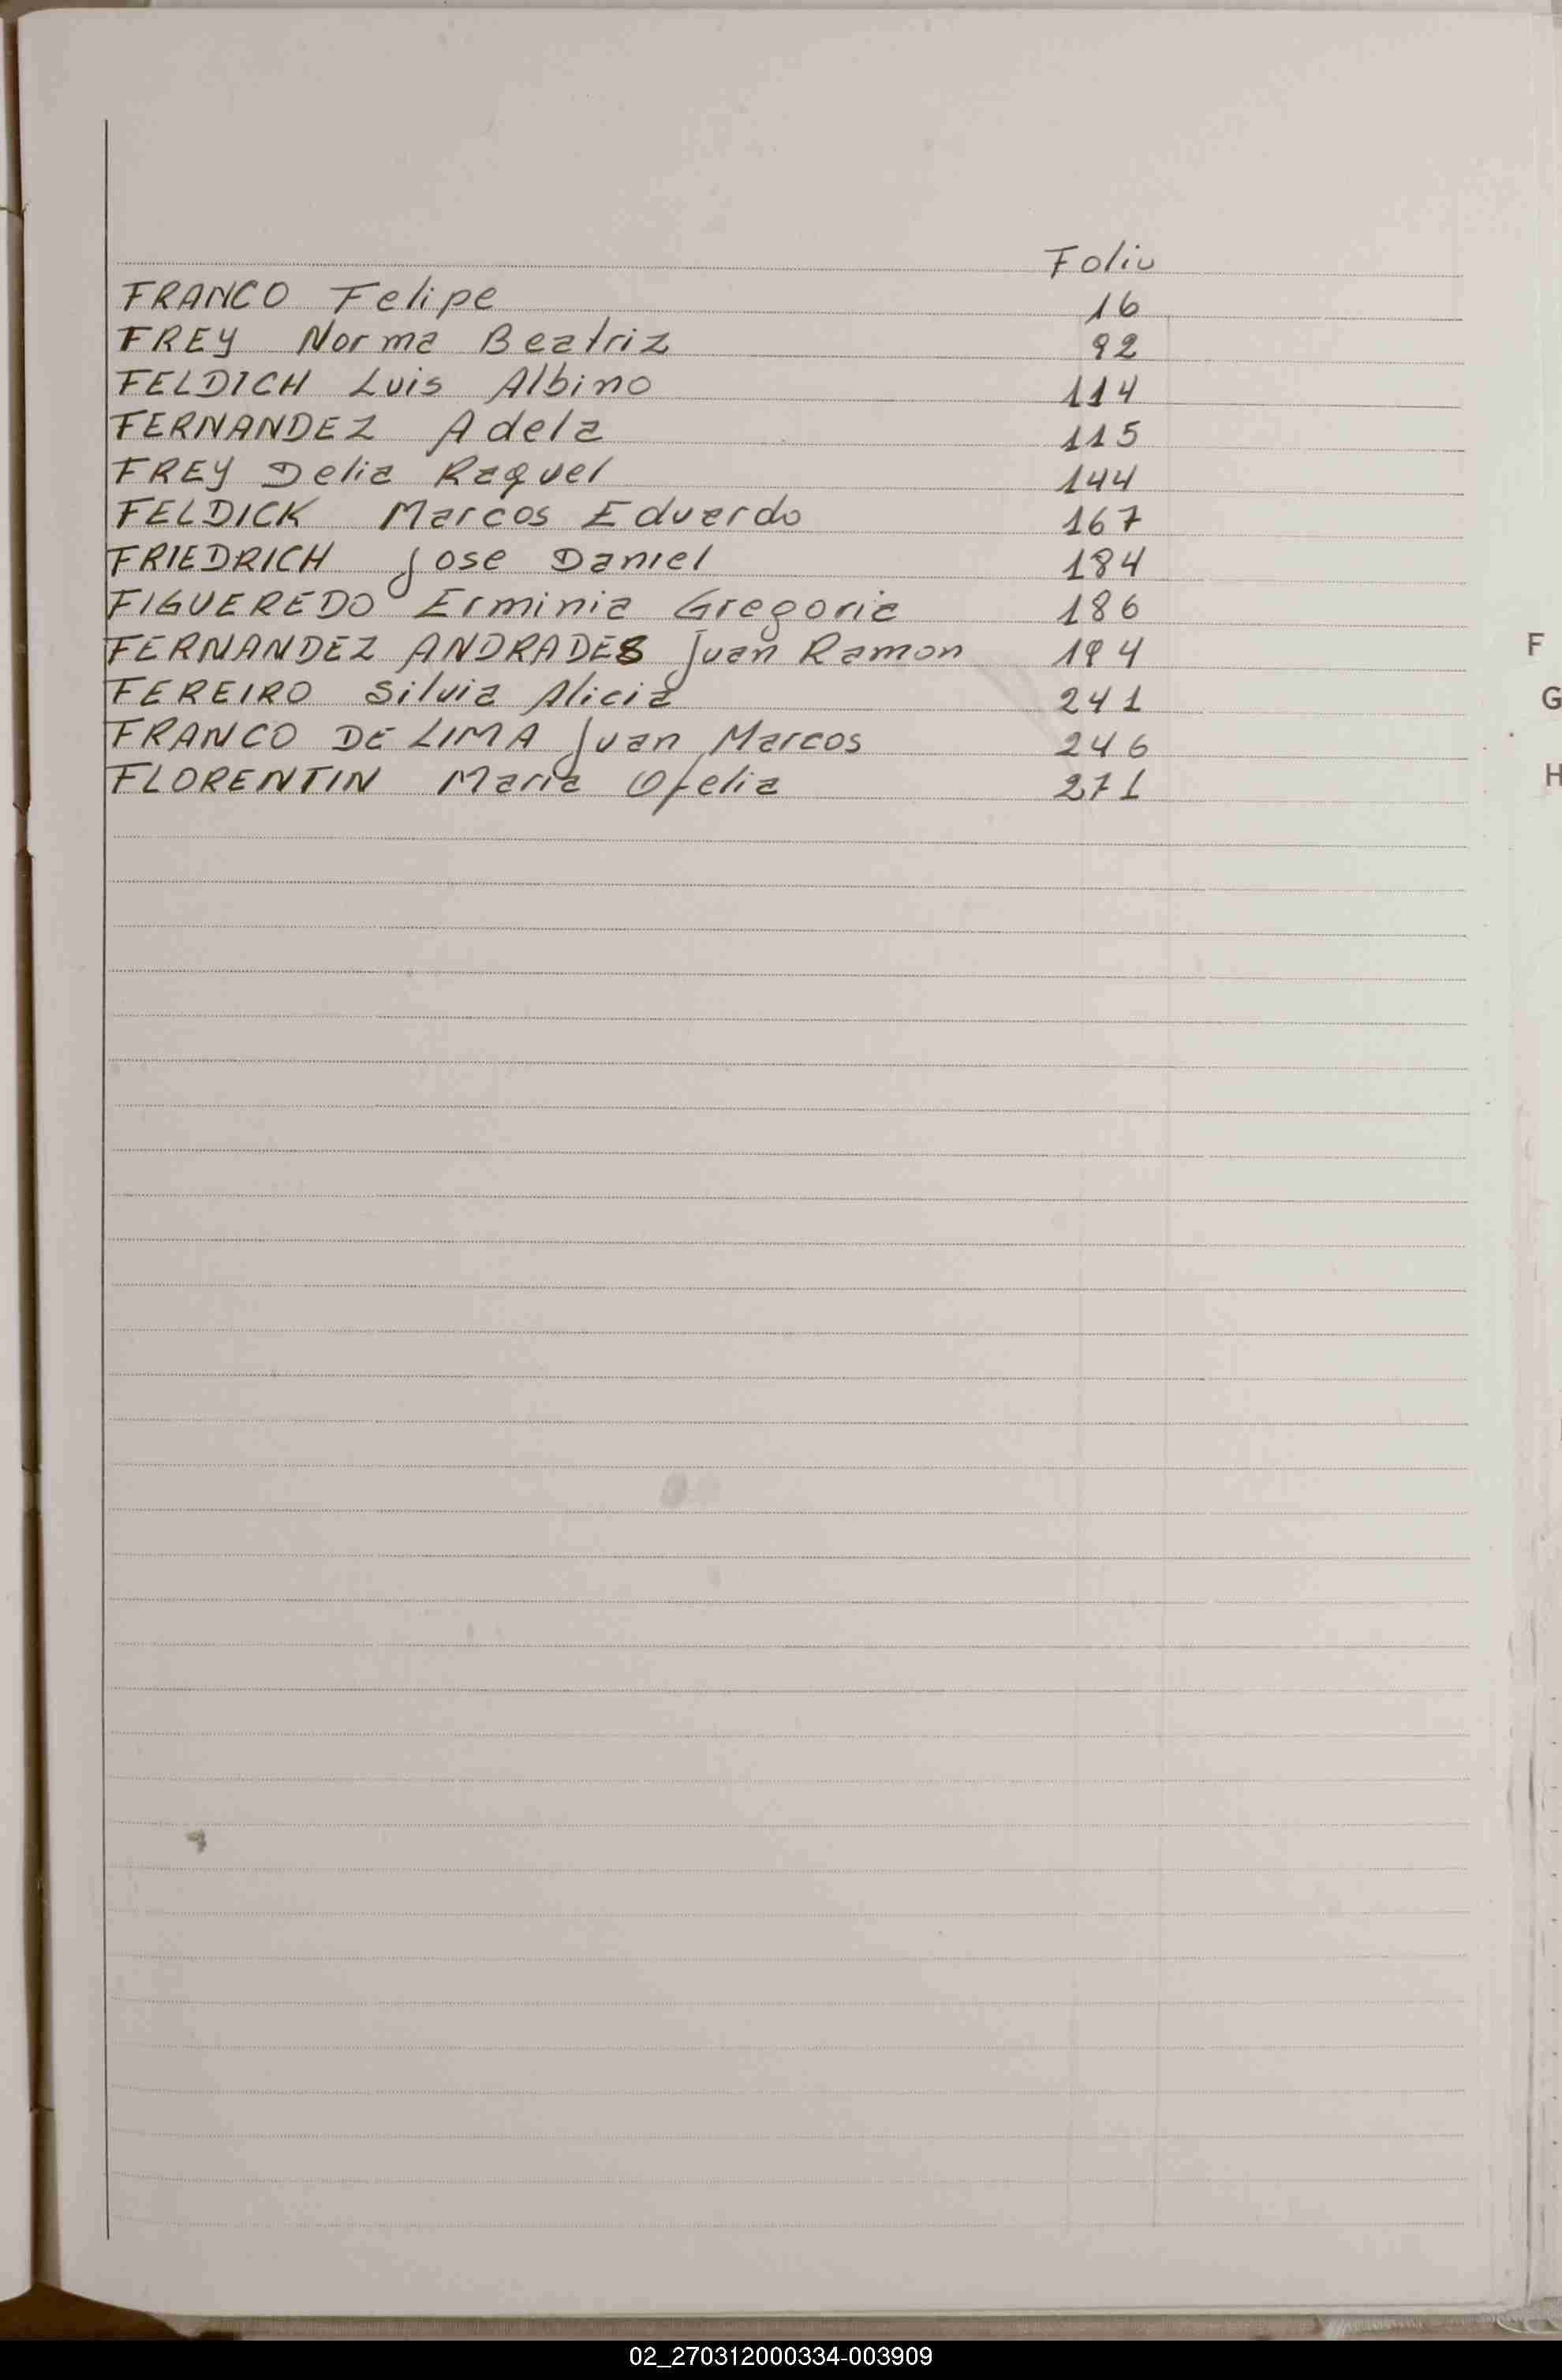 Folio
FRANCO Felipe 16
FREY Norma Beatriz 92
FELDICH Luis Albino 114
FERNANDEZ Adela 115
FREY Delia Raquel 144
FELDICK Marcos Eduardo 167
FRIEDRICH Jose Daniel 184
FIGUEREDO Erminia Gregoria 186
FERNANDEZ ANDRADES Juan Ramon 194
FEREIRO Silvia Alicia 241
FRANCO DE LIMA Juan Marcos 246
FLORENTIN Maria Ofelia 271
F
G
H
02_270312000334-003909